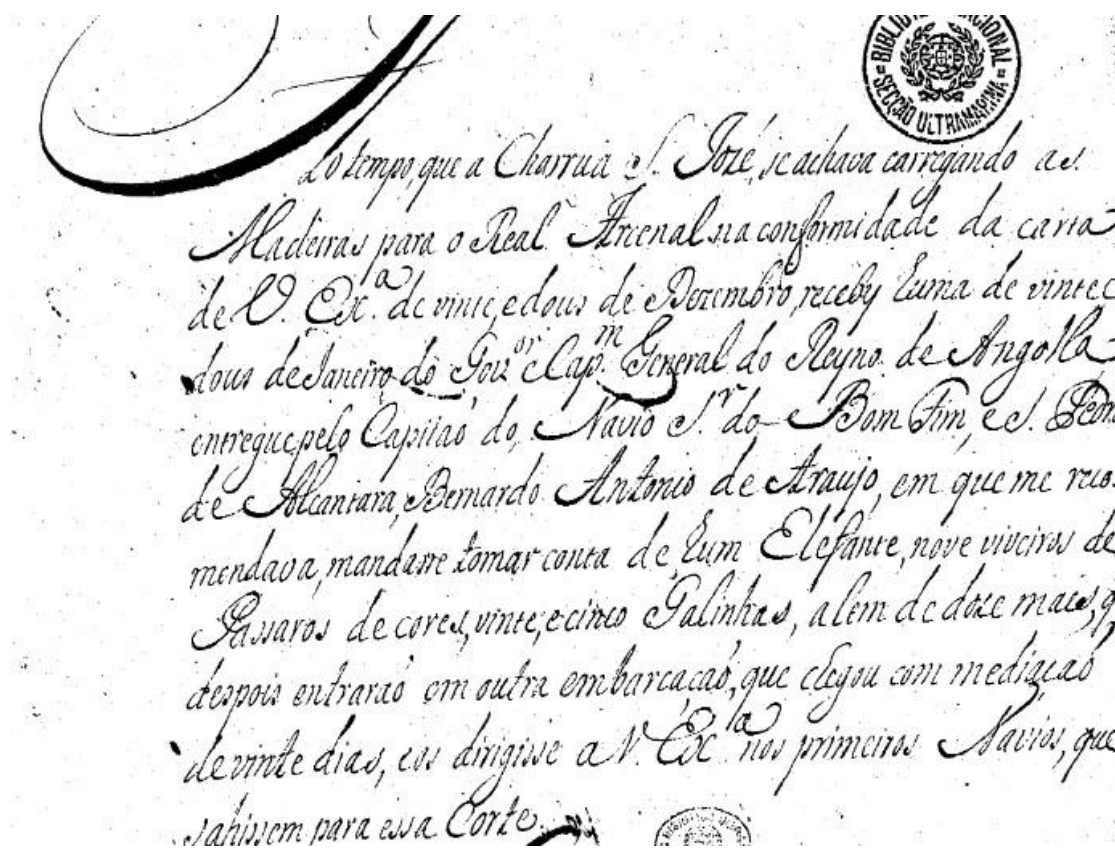 BIBLIOTECA NACIONAL
= SECÇÃO ULTRAMARINA =
Ao tempo, que a Charrua S. Jozé, se achava carregando as
Madeiras para o Real Arcenal na conformidade da carta
de V. Ex.ª de vinte, e dous de Dezembro, receby huma de vinte e
dous de Janeiro do Gov.or e Cap.m General do Reyno de Angolla
entregue pelo Capitaõ do Navio S.r do Bom Fim, e S. Pedro
de Alcantara, Bernardo Antonio de Araujo, em que me reco
mendava, mandasse tomar conta de hum Elefante, nove viveiros de
Passaros de cores, vinte, e cinco Galinhas, alem de doze mais, q
despois entraraõ em outra embarcaçaõ, que chegou com mediaçaõ
de vinte dias, e os dirigisse a V. Ex.ª nos primeiros Navios, que
sahissem para essa Corte.